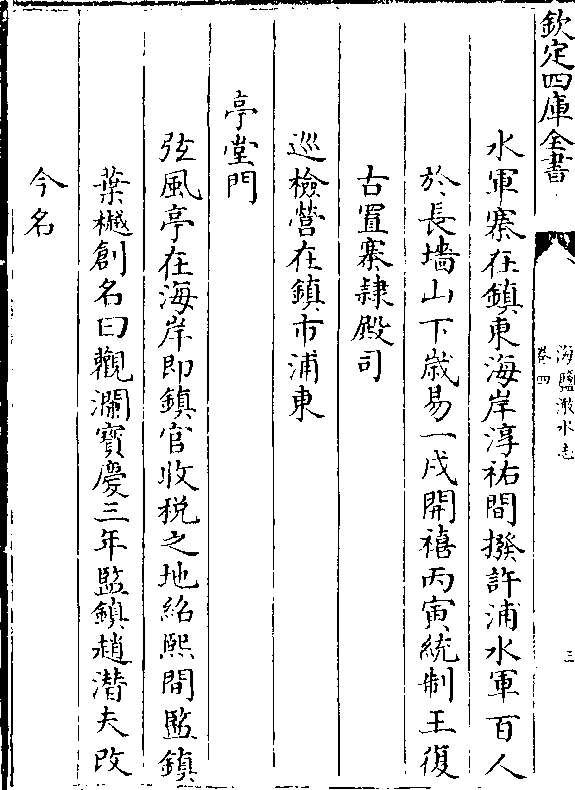 欽定四庫全書
海鹽澉水志
卷四
三
水軍寨在鎮東海岸淳祐間撥許浦水軍百人
於長墻山下歲易一戍開禧丙寅統制王復
古置寨隸殿司
巡檢營在鎮市浦東
亭堂門
弦風亭在海岸即鎮官收稅之地紹熈間監鎮
葉樾創名曰觀瀾寳慶三年監鎮趙潛夫改
今名